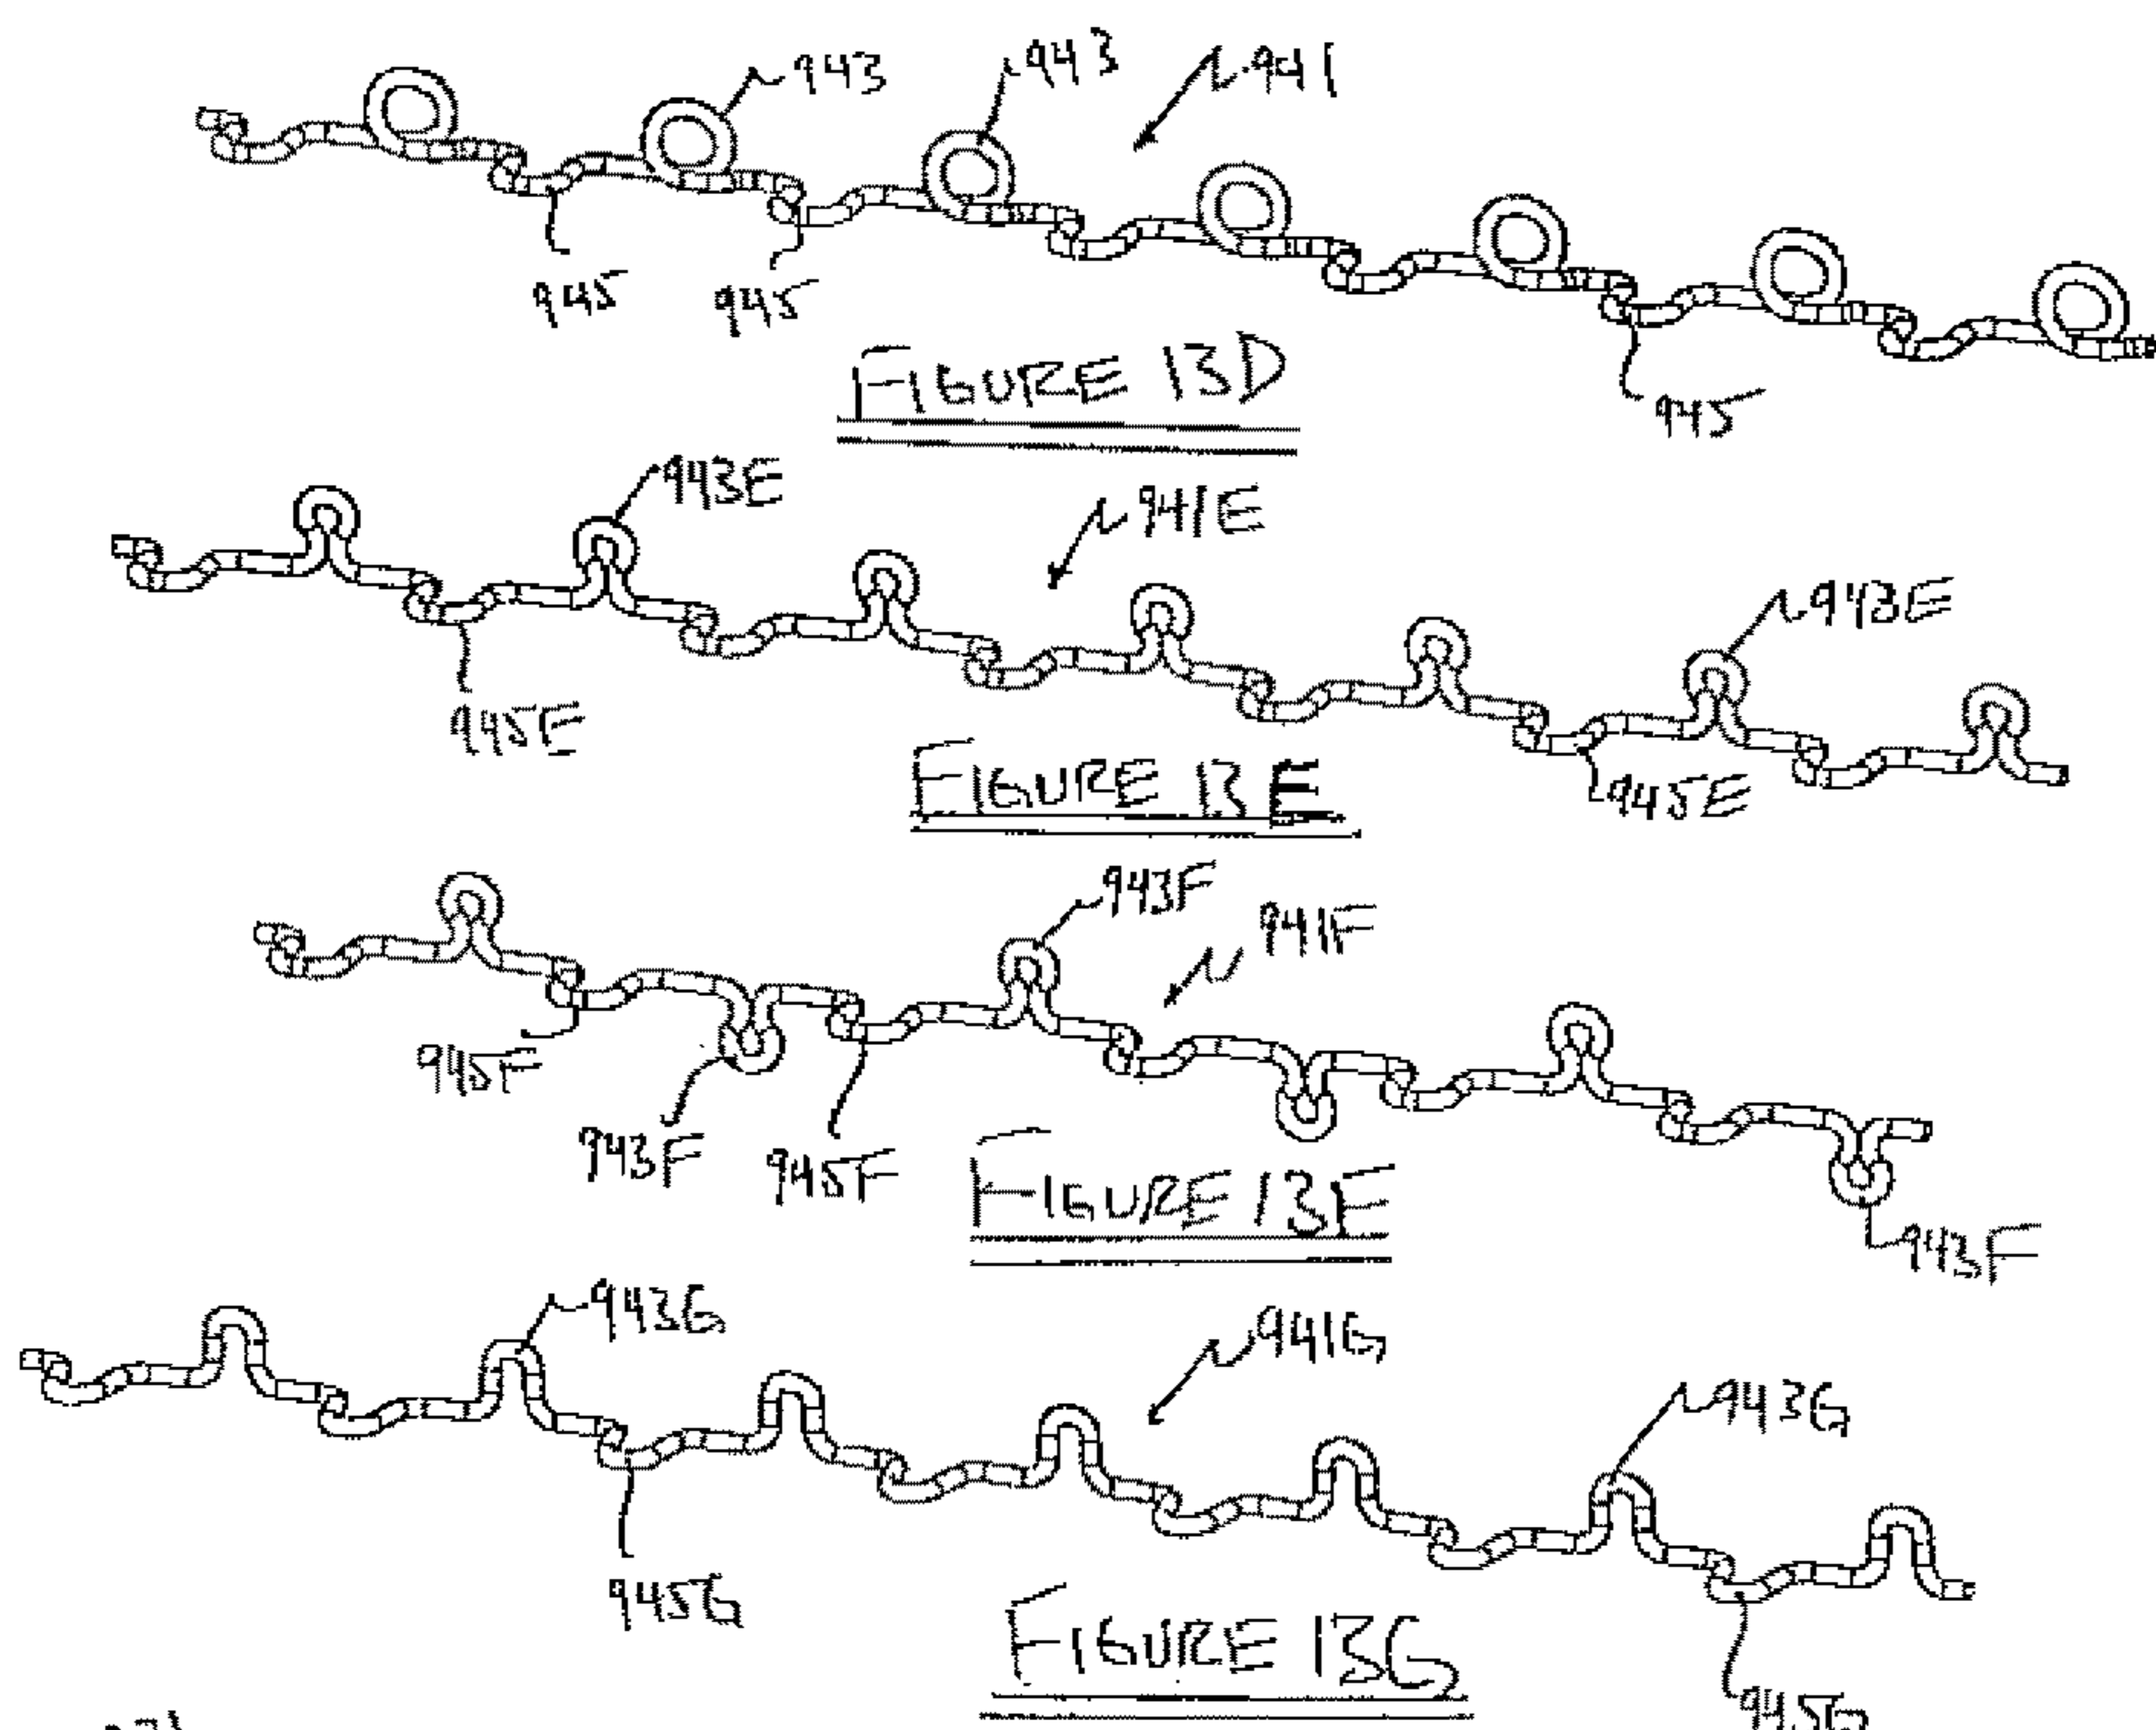 943
943
941
945
945
FIGURE 13D
945
943E
941E
943E
945E
FIGURE 13E
945E
943F
941F
945F
943F
945F
FIGURE 13F
943F
943G
941G
943G
945G
FIGURE 13G
945G